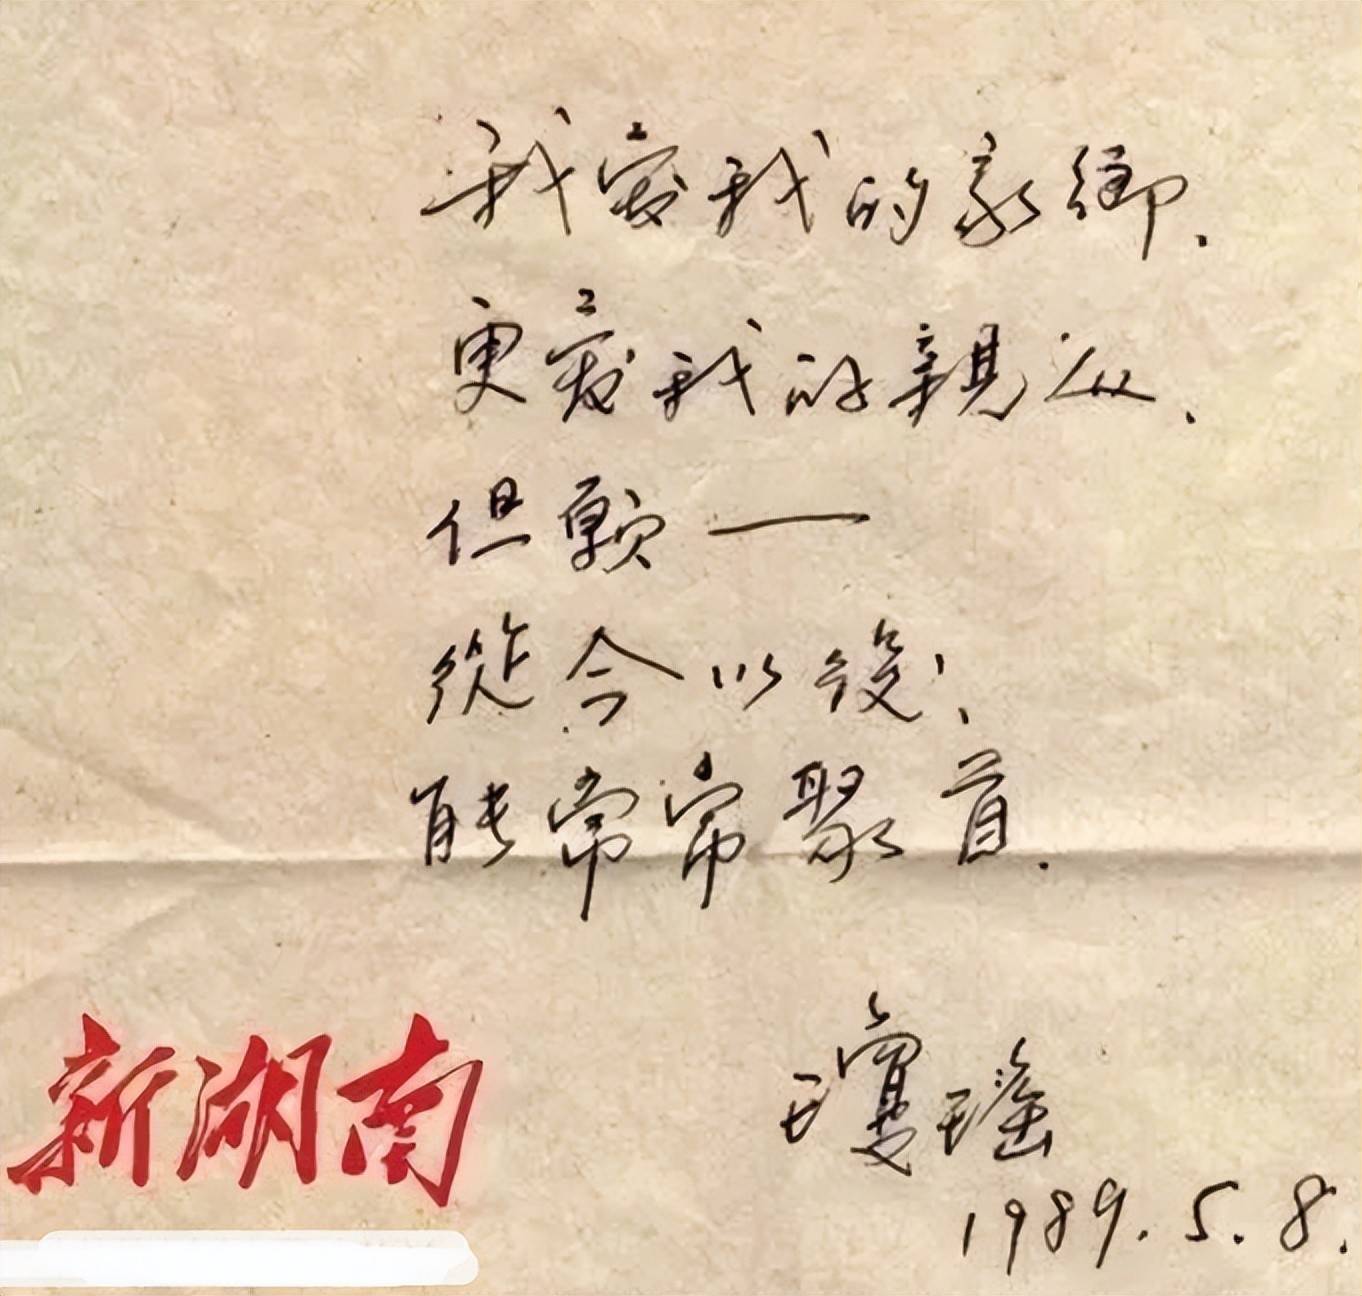 我愛我的家鄉、
更愛我的親、
但願——
從今以後、
能常常聚首.
瓊瑤
1989.5.8.
新湖南